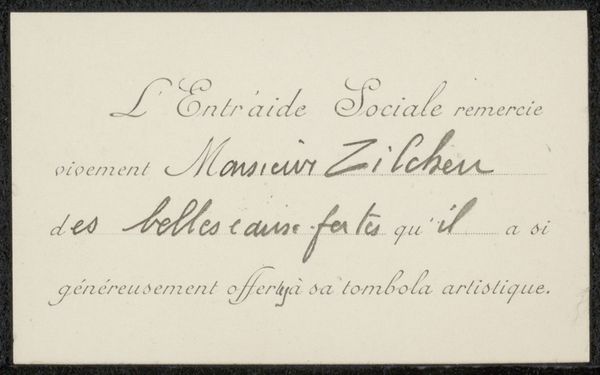 L'Entr'aide Sociale remercie
vivement Monsieur Zilcken
des belles eaux-fortes qu'il a si
généreusement offertes à sa tombola artistique.